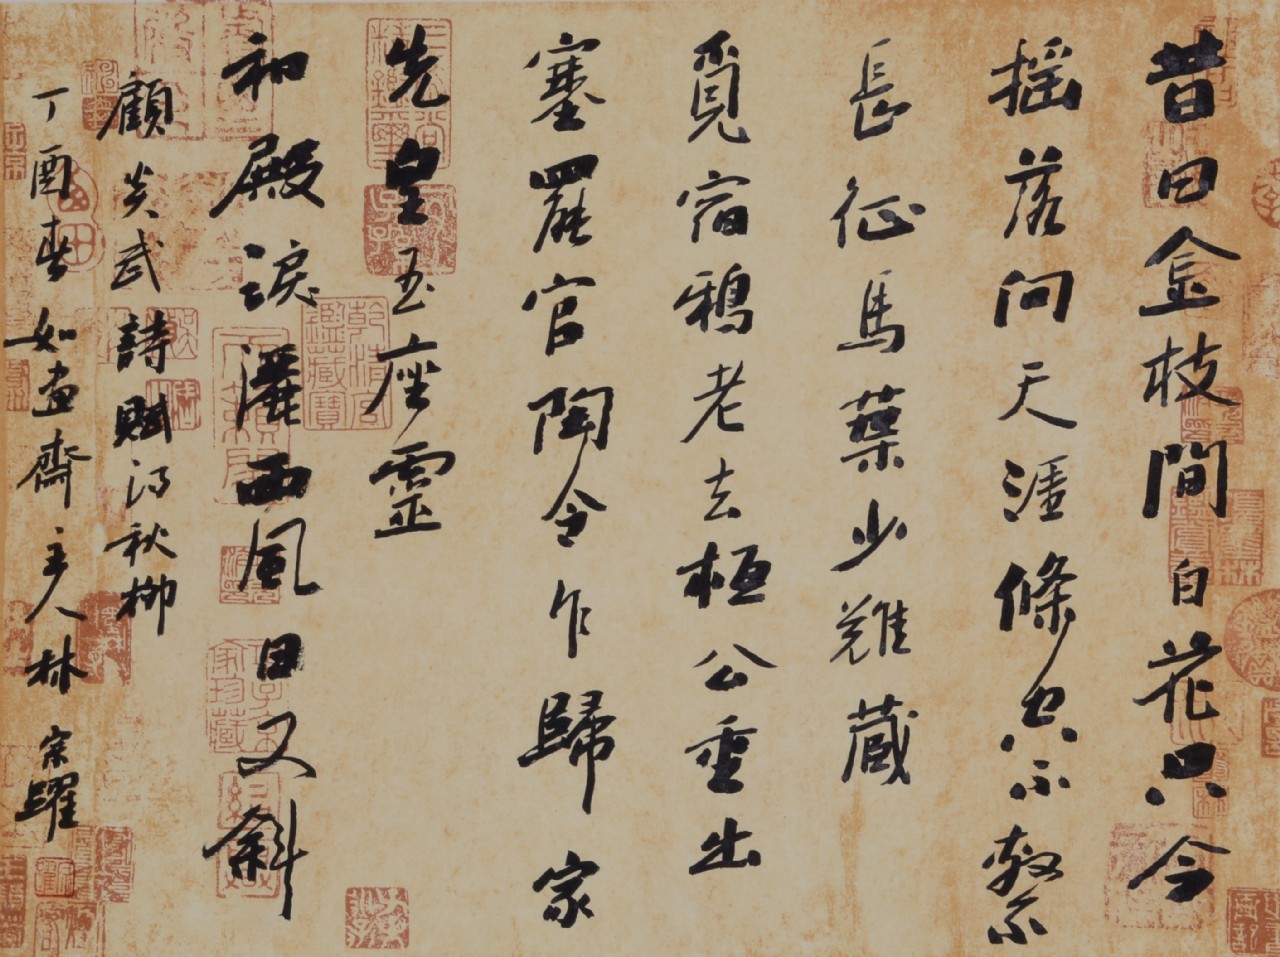 昔日金枝間白花只今
搖落向天涯條空不繫
長征馬葉少難藏
覓宿鴉老去桓公重出
塞罷官陶令乍歸家
先皇玉座靈
和殿淚灑西風日又斜
顧炎武詩賦得秋柳
丁酉春如畫齋主人林宗躍
乾清宮鑑藏寶